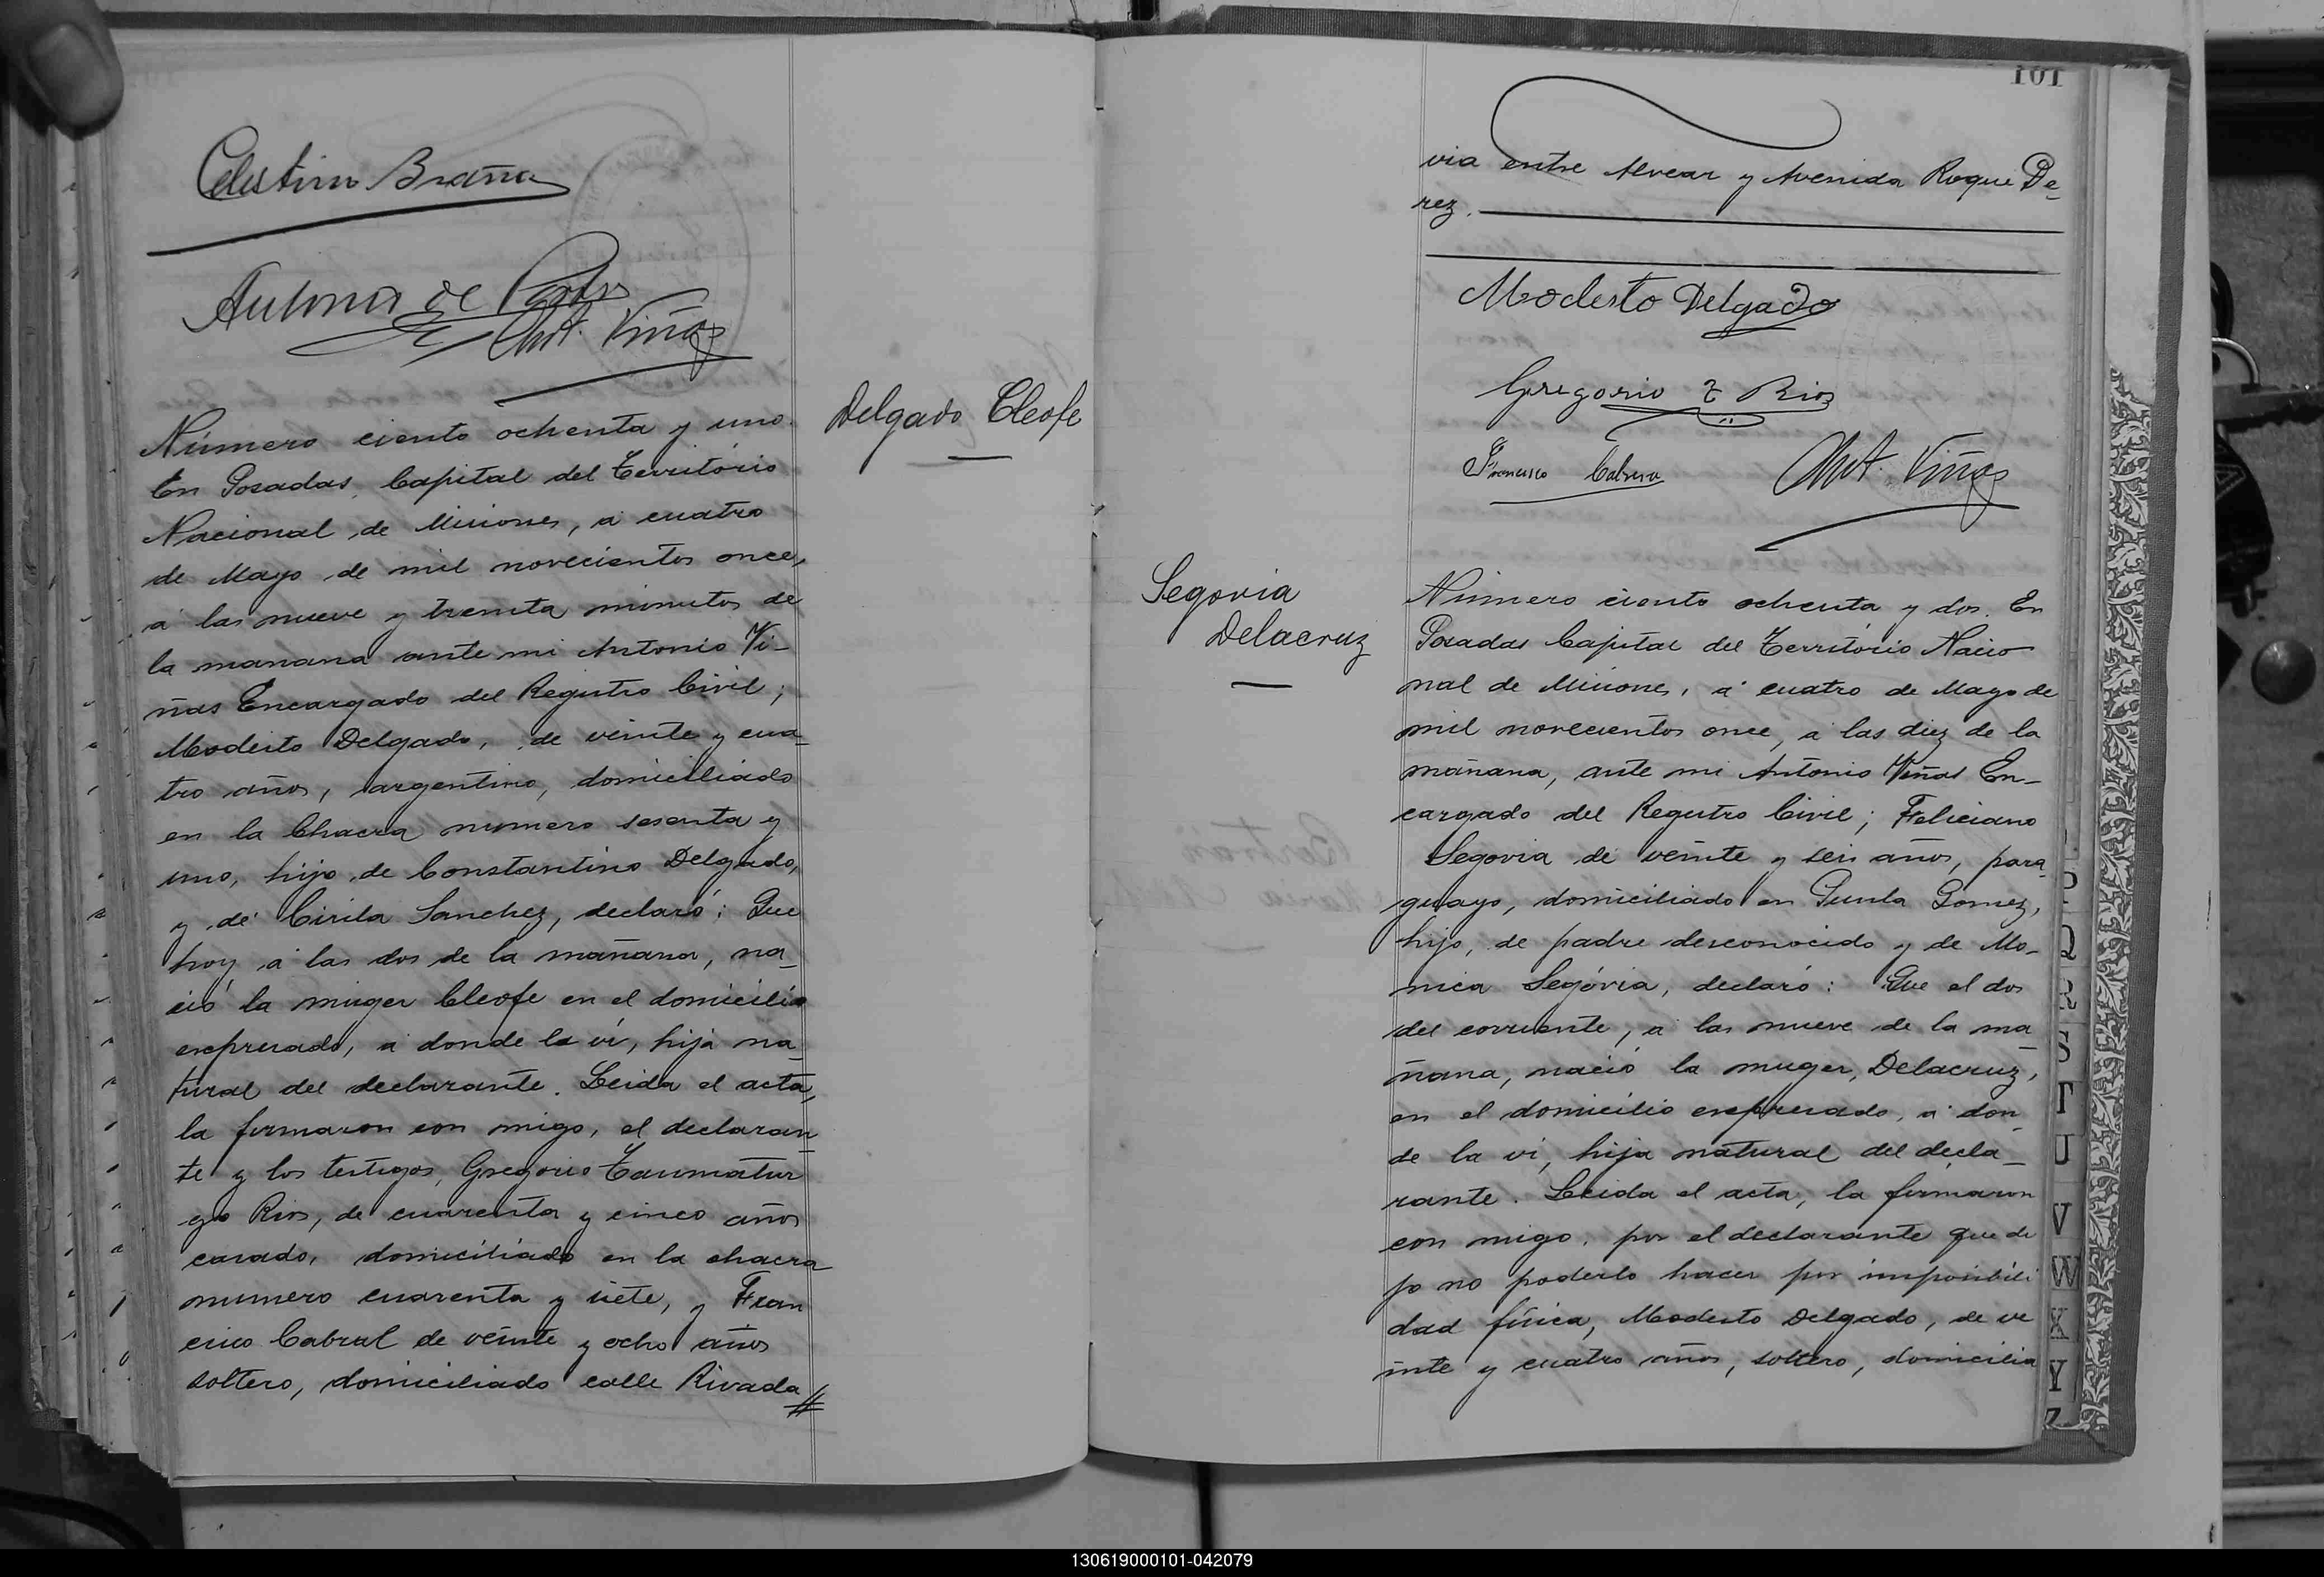 Celestino Braña
Antonio de
Ant. Viñas
Delgado Cleofe
Número ciento ochenta y uno.
En Posadas, Capital del Territorio
Nacional de Misiones, a cuatro
de Mayo de mil novecientos once,
a las nueve y treinta minutos de
la manana ante mi Antonio Vi-
ñas Encargado del Registro Civil;
Modesto Delgado, de veinte y cua-
tro años, argentino, domiciliado
en la Chacra numero sesenta y
uno, hijo de Constantino Delgado,
y de Cirila Sanchez, declaró: Que
hoy a las dos de la mañana, na-
ció la muger Cleofe en el domicilio
expresado, a donde la vi, hija na-
tural del declarante. Leida el acta,
la firmaron con migo, el declaran-
te y los testigos, Gregorio Taumatur
go Rios, de cuarenta y cinco años
casado, domiciliado en la chacra
numero cuarenta y siete, y Fran
cisco Cabral de veinte y ocho años
soltero, domiciliado calle Rivada
101
via entre Alvear y Avenida Roque Pe-
rez.
Modesto Delgado
Gregorio T Rios
Francisco Cabrera
Ant. Viñas
Segovia
Delacruz
Número ciento ochenta y dos. En
Posadas Capital del Território Nacio
nal de Misiones, a cuatro de Mayo de
mil novecientos once, a las diez de la
mañana, ante mi Antonio Viñas En-
cargado del Registro Civil; Feliciano
Segovia de veinte y seis años, para-
guayo, domiciliado en Punta Gomez,
hijo, de padre desconocido y de Mo-
nica Segóvia, declaró: Que el dos
del corriente, a las nueve de la ma-
ñana, nació la muger, Delacruz,
en el domicilio expresado, a don-
de la vi, hija natural del decla-
rante. Leida el acta, la firmaron
con migo, por el declarante que di
jo no poderlo hacer por imposibili
dad física, Modesto Delgado, de ve
inte y cuatro años, soltero, domicilia
P
Q
R
S
T
U
V
W
X
Y
Z
130619000101-042079